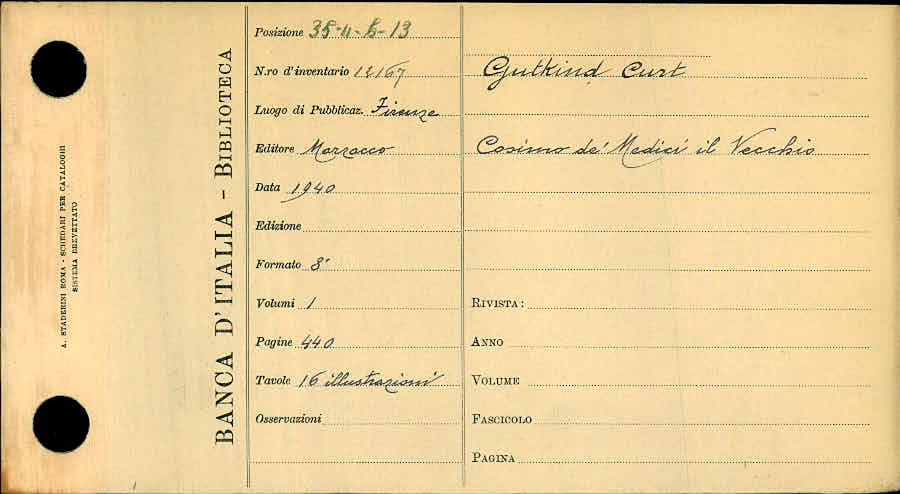 A. STADERINI ROMA - SCHEDARI PER CATALOGHI
SISTEMA BREVETTATO
BANCA D'ITALIA - BIBLIOTECA
Posizione 35-11-b-13
N.ro d'inventario 12167
Luogo di Pubblicaz. Firenze
Editore Marzocco
Data 1940
Edizione
Formato 8°
Volumi 1
Pagine 440
Tavole 16 illustrazioni
Osservazioni
Gutkind Curt
Cosimo de' Medici il Vecchio
RIVISTA:
ANNO
VOLUME
FASCICOLO
PAGINA